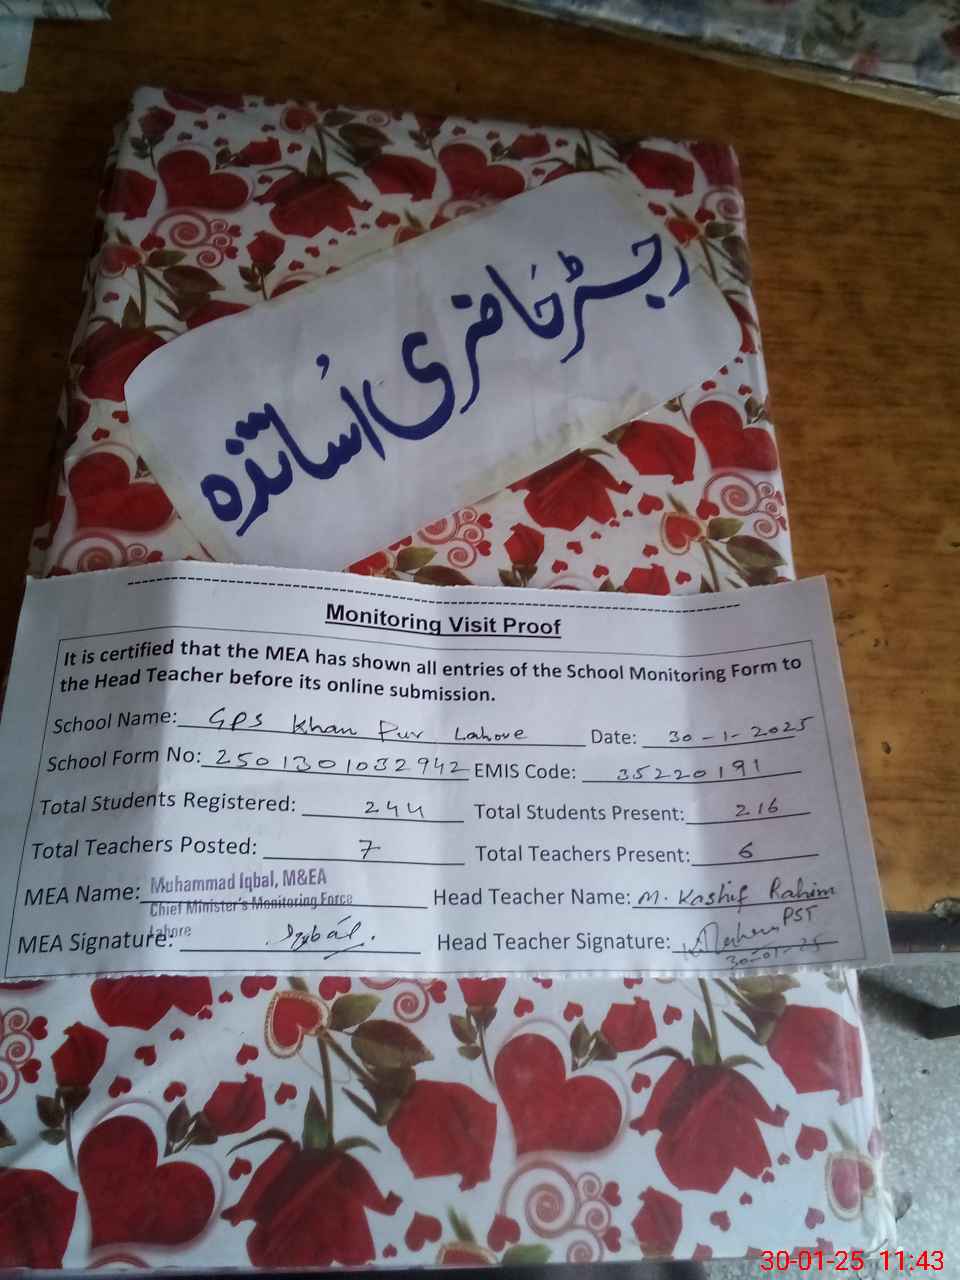 رجسٹر حاضری اُساتذہ
Monitoring Visit Proof
It is certified that the MEA has shown all entries of the School Monitoring Form to
the Head Teacher before its online submission.
School Name: GPS Khan Pur Lahore Date: 30-1-2025
School Form No: 2501301032942 EMIS Code: 35220191
Total Students Registered: 244 Total Students Present: 216
Total Teachers Posted: 7 Total Teachers Present: 6
MEA Name: Muhammad Iqbal, M&EA
Chief Minister's Monitoring Force
Lahore
Head Teacher Name: M. Kashif Rahim
PST
MEA Signature: Iqbal. Head Teacher Signature:
30-01-25
30-01-25 11:43